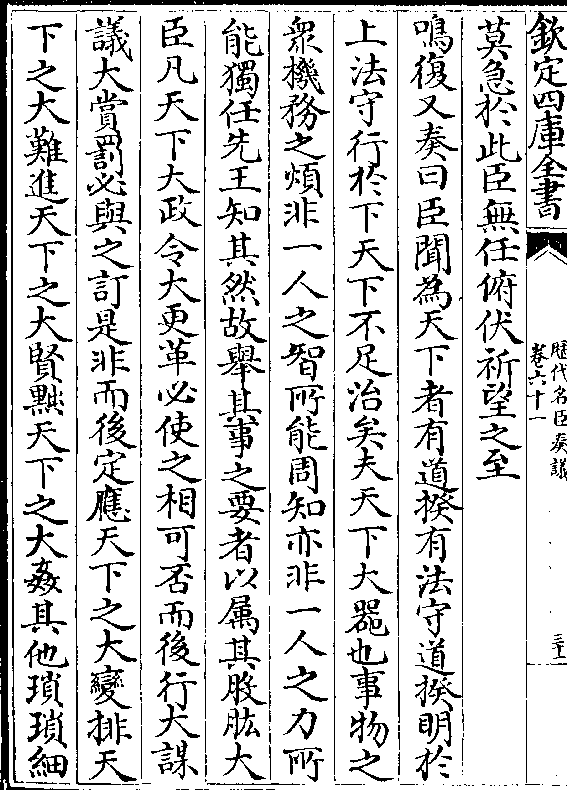 欽定四庫全書
歷代名臣奏議
卷六十一
三十一
莫急於此臣無任俯伏祈望之至
鳴復又奏曰臣聞為天下者有道揆有法守道揆明於
上法守行於下天下不足治矣夫天下大器也事物之
衆機務之煩非一人之智所能周知亦非一人之力所
能獨任先王知其然故舉其事之要者以属其股肱大
臣凡天下大政令大更革必使之相可否而後行大謀
議大賞罰必與之訂是非而後定應天下之大變排天
下之大難進天下之大賢黜天下之大姦其他瑣瑣細